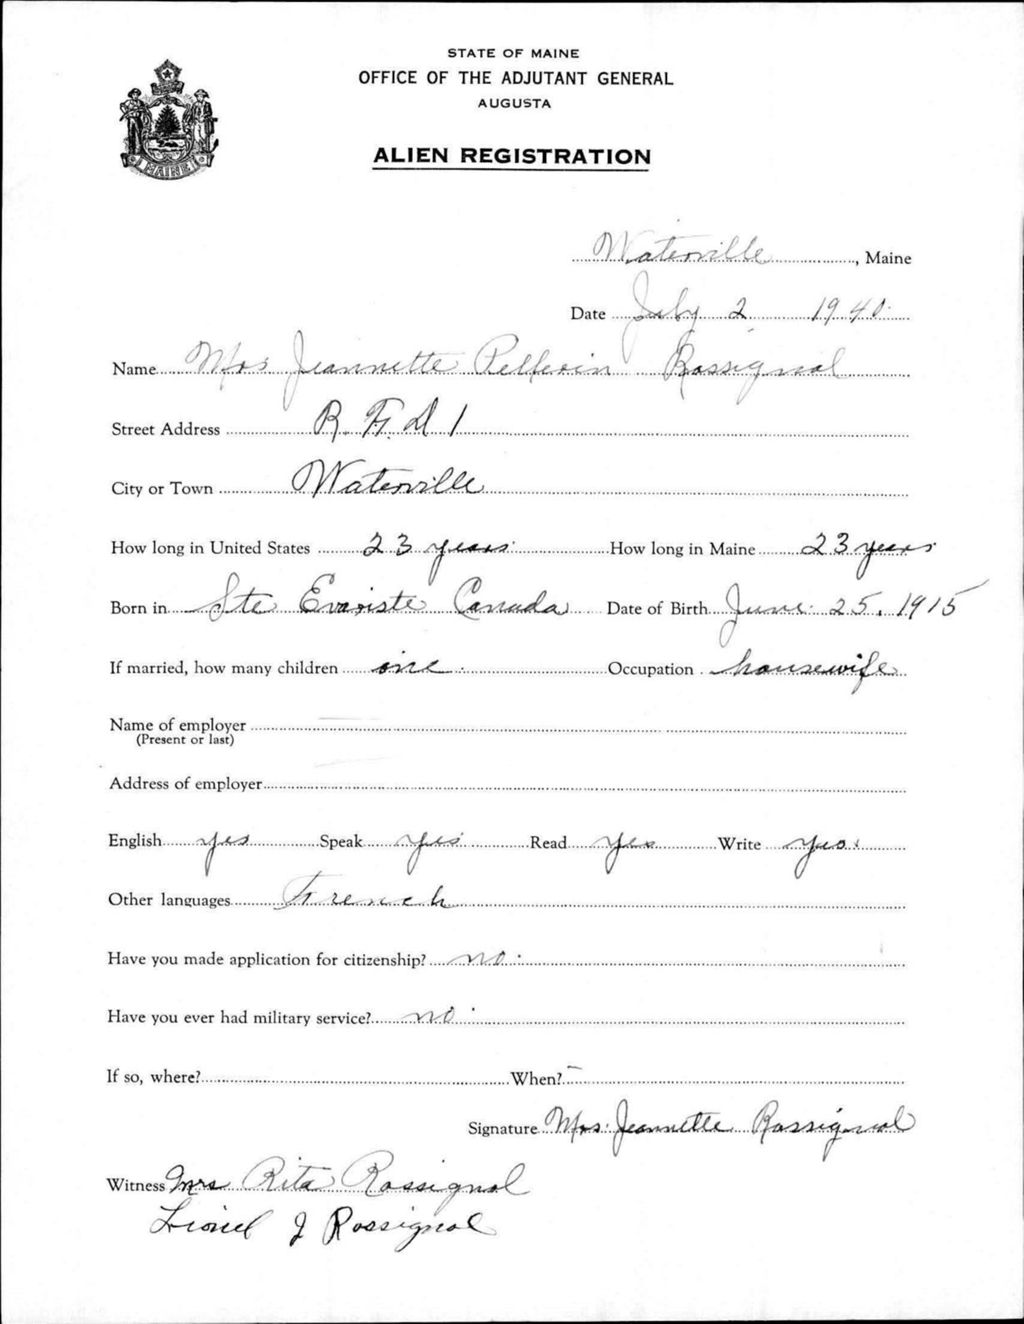 STATE OF MAINE
OFFICE OF THE ADJUTANT GENERAL
AUGUSTA
ALIEN REGISTRATION
MAINE
Waterville, Maine
Date July 2 1940.
Name Mrs Jeannette Pellerin Rossignol
Street Address R.F.D 1
City or Town Waterville
How long in United States 23 years. How long in Maine 23 years.
Born in Ste Evariste Canada Date of Birth June 25, 1915
If married, how many children one. Occupation housewife
Name of employer
(Present or last)
Address of employer
English yes Speak yes Read yes Write yes.
Other languages French
Have you made application for citizenship? no.
Have you ever had military service? no.
If so, where? When? -
Signature Mrs. Jeannette Rossignol
Witness Mrs Rita Rossignol
Lionel J Rossignol